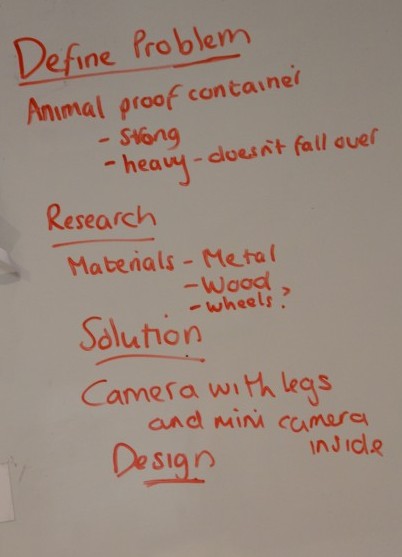 Define Problem
Animal proof container
- strong
- heavy - doesn't fall over
Research
Materials - Metal
- Wood
- wheels?
Solution
Camera with legs
and mini camera
inside
Design